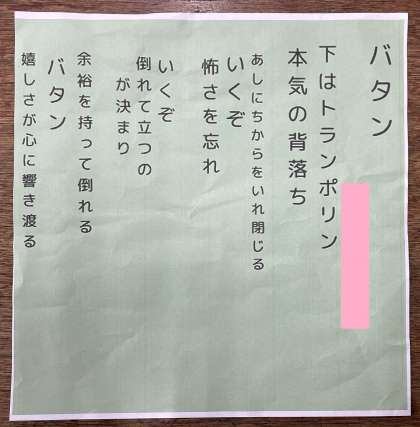 バタン
下はトランポリン
本気の背落ち
あしにちからをいれ閉じる
いくぞ
怖さを忘れ
いくぞ
倒れて立つの
が決まり
余裕を持って倒れる
バタン
嬉しさが心に響き渡る